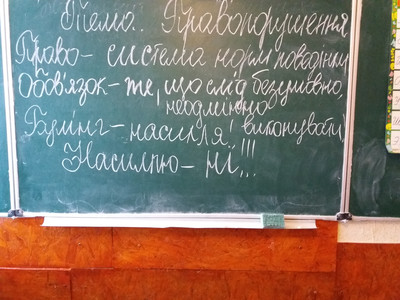 Тема: Правопорушення
Право - система норм поведінки
Обов'язок - те, що слід безумовно,
неодмінно
Булінг - насилля! виконувати
Насиллю - ні!!!